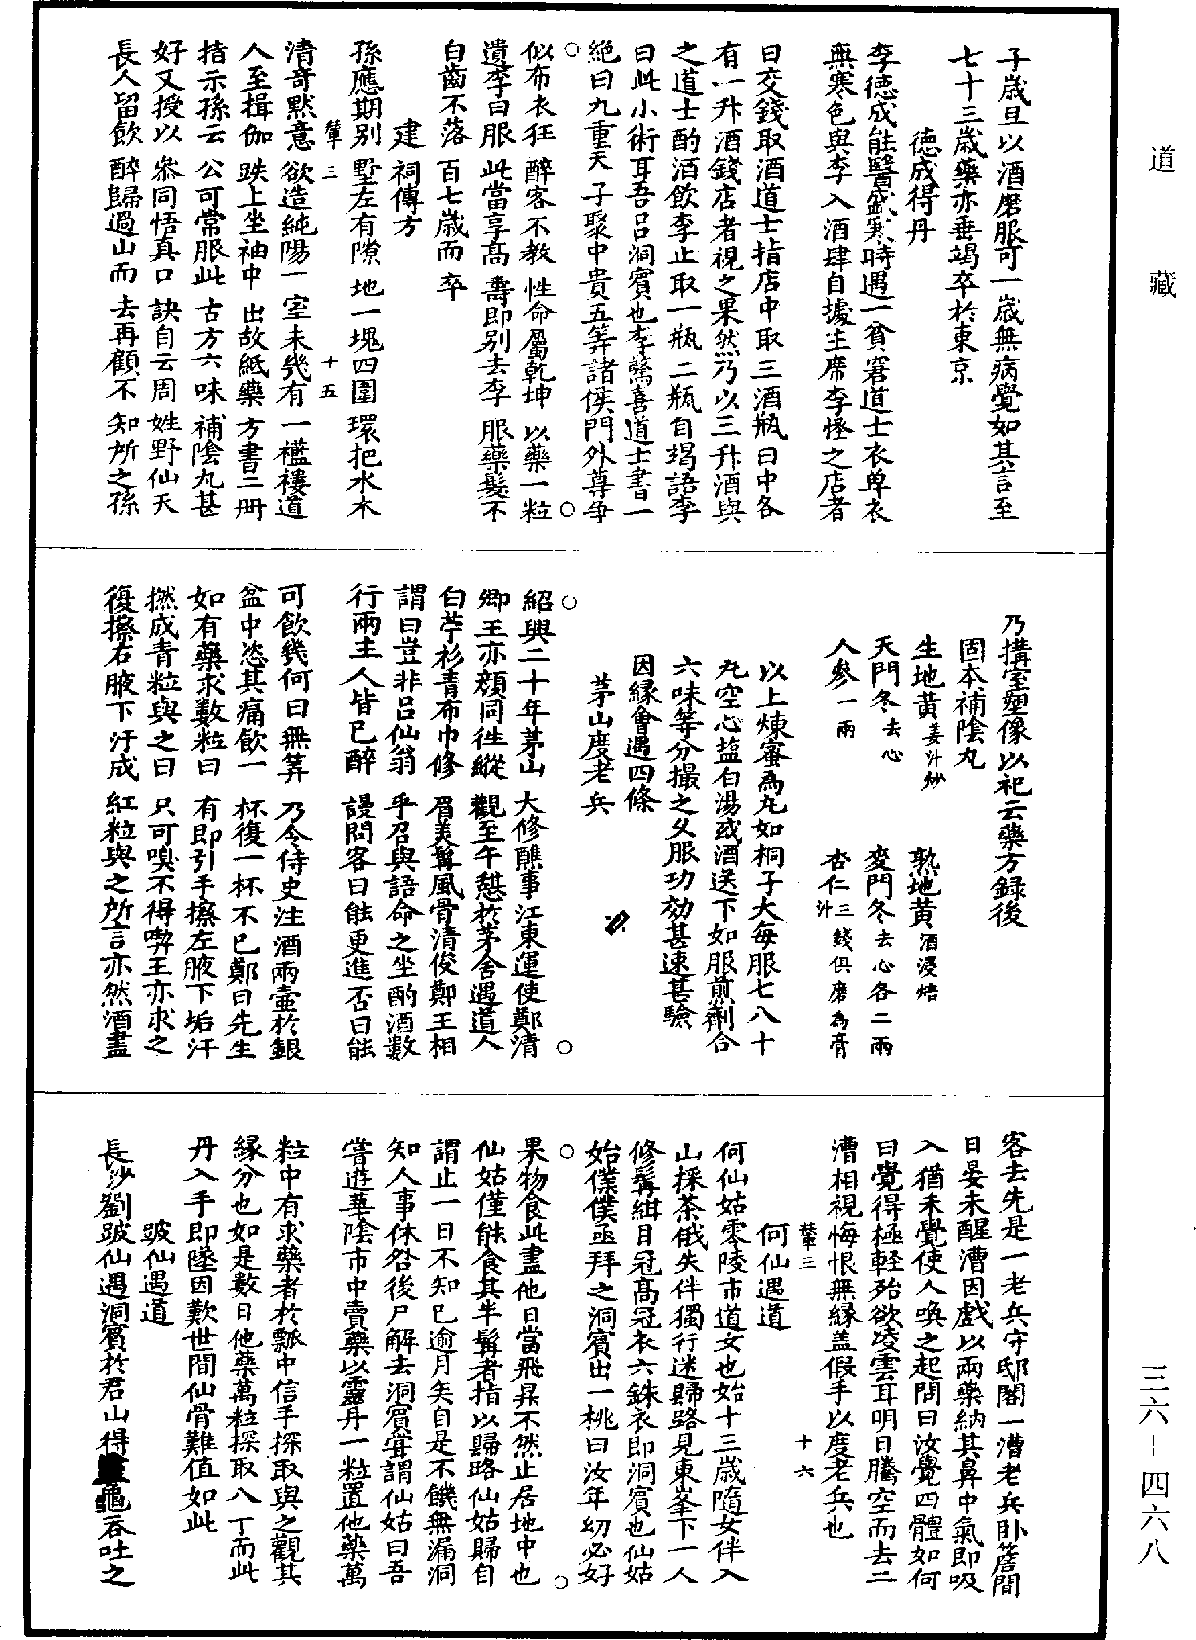 道藏
子歲旦以酒磨服可一歲無病覺如其言至
七十三歲藥亦垂竭卒於東京
德成得丹
李德成能醫盛寒時遇一貧窘道士衣單衣
無寒色與李入酒肆自據主席李怪之店者
曰交錢取酒道士指店中取三酒瓶曰中各
有一升酒錢店者視之果然乃以三升酒與
之道士酌酒飲李止取一瓶二瓶自竭語李
曰此小術耳吾呂洞賓也李驚喜道士書一
絕曰九重天子聚中貴五等諸侯門外尊爭
似布衣狂醉客不教性命屬乾坤以藥一粒
遺李曰服此當享高壽即别去李服藥髮不
白齒不落百七歲而卒
建祠傳方
孫應期別墅左有隙地一塊四圍環把水木
清奇默意欲造純陽一室未幾有一襤褸道
肇三 十五
人至揖伽趺上坐袖中出故紙藥方書二册
指示孫云公可常服此古方六味補陰丸甚
好又授以叅同悟真口訣自云周姓野仙天
長人留飲醉歸過山而去再顧不知所之孫
乃搆室塑像以祀云藥方録後
固本補陰丸
生地黃姜汁炒 熟地黃酒浸焙
天門冬去心 麥門冬去心各二兩
人參一兩 杏仁三錢俱磨為膏汁
以上煉蜜為丸如桐子大每服七八十
丸空心塩白湯或酒送下如服煎劑合
六味等分撮之久服功効甚速甚驗
因緣會遇四條
茅山度老兵
紹興二十年茅山大修醮事江東運使鄭清
卿王亦顏同徃縱觀至午憇於茅舍遇道人
白苧衫青布巾修眉美髯風骨清俊鄭王相
謂曰豈非呂仙翁乎召與語命之坐酌酒數
行兩主人皆已醉謾問客曰能更進否曰能
可飲幾何曰無筭乃令侍史注酒兩壷於銀
盆中恣其痛飲一杯復一杯不已鄭曰先生
如有藥求數粒曰有即引手擦左腋下垢汗
撚成青粒與之曰只可嗅不得嚙王亦求之
復擦右腋下汗成紅粒與之所言亦然酒盡
客去先是一老兵守邸閣一漕老兵卧簷間
日晏未醒漕因戲以兩藥納其鼻中氣即吸
入猶未覺使人喚之起問曰汝覺四體如何
曰覺得極輕殆欲凌雲耳明日騰空而去二
漕相視悔恨無緣盖假手以度老兵也
肇三 十六
何仙遇道
何仙姑零陵市道女也始十三歲隨女伴入
山採茶俄失伴獨行迷歸路見東峯下一人
修髯紺目冠高冠衣六銖衣即洞賓也仙姑
始僕僕亟拜之洞賓出一桃曰汝年幼必好
果物食此盡他日當飛昇不然止居地中也
仙姑僅能食其半髯者指以歸路仙姑歸自
謂止一日不知已逾月矣自是不饑無漏洞
知人事休咎後尸解去洞賓嘗謂仙姑曰吾
嘗遊華陰市中賣藥以靈丹一粒置他藥萬
粒中有求藥者於瓢中信手探取與之觀其
緣分也如是數日他藥萬粒探取八丁而此
丹入手即墜因歎世間仙骨難值如此
跛仙遇道
長沙劉跛仙遇洞賓於君山得龜吞吐之
三六—四六八